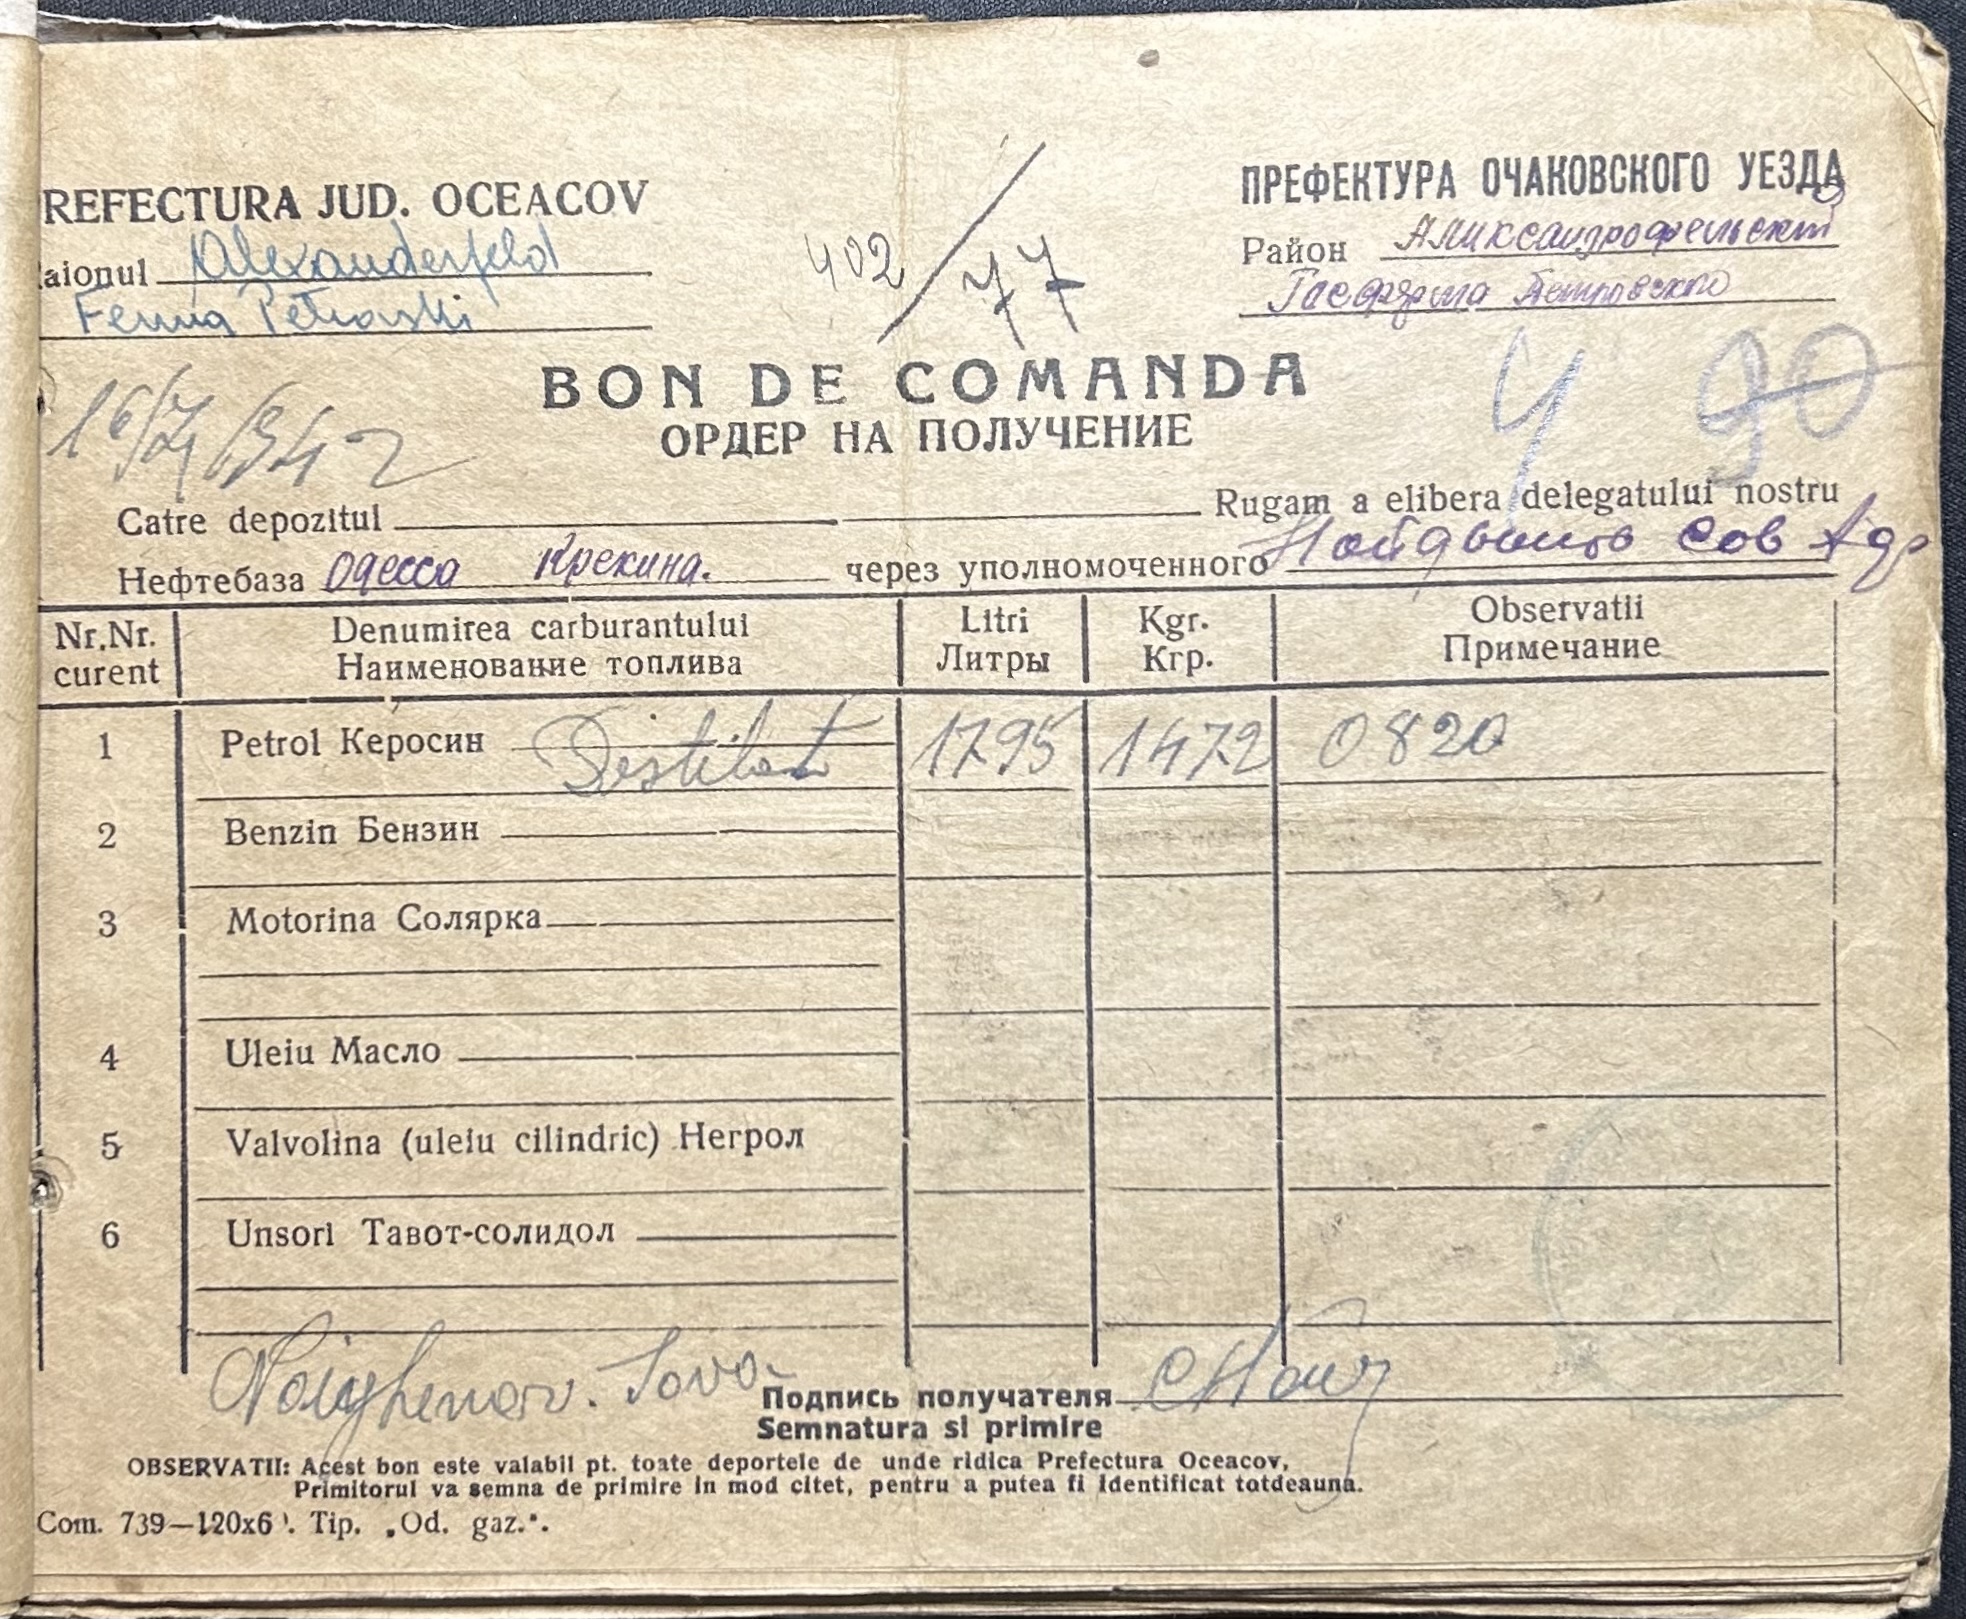 REFECTURA JUD. OCEACOV
aionul Alexanderfeld
Ferma Petrovski
402/77
ПРЕФЕКТУРА ОЧАКОВСКОГО УЕЗДА
Район
4 90
BON DE COMANDA
ОРДЕР НА ПОЛУЧЕНИЕ
Catre depozitul Rugam a elibera delegatului nostru
Нефтебаза Одесса Крекина. через уполномоченного
Nr.Nr. curent
Denumirea carburantului
Наименование топлива
Litri
Литры
Kgr.
Кгр.
Observatii
Примечание
1 Petrol Керосин Distilat 1795 1472 0820
2 Benzin Бензин
3 Motorina Солярка
4 Uleiu Масло
5 Valvolina (uleiu cilindric) Негрол
6 Unsori Тавот-солидол
Подпись получателя
Semnatura si primire
OBSERVATII: Acest bon este valabil pt. toate deportele de unde ridica Prefectura Oceacov,
Primitorul va semna de primire in mod citet, pentru a putea fi identificat totdeauna.
Com. 739—120x6 Tip. „Od. gaz.“.